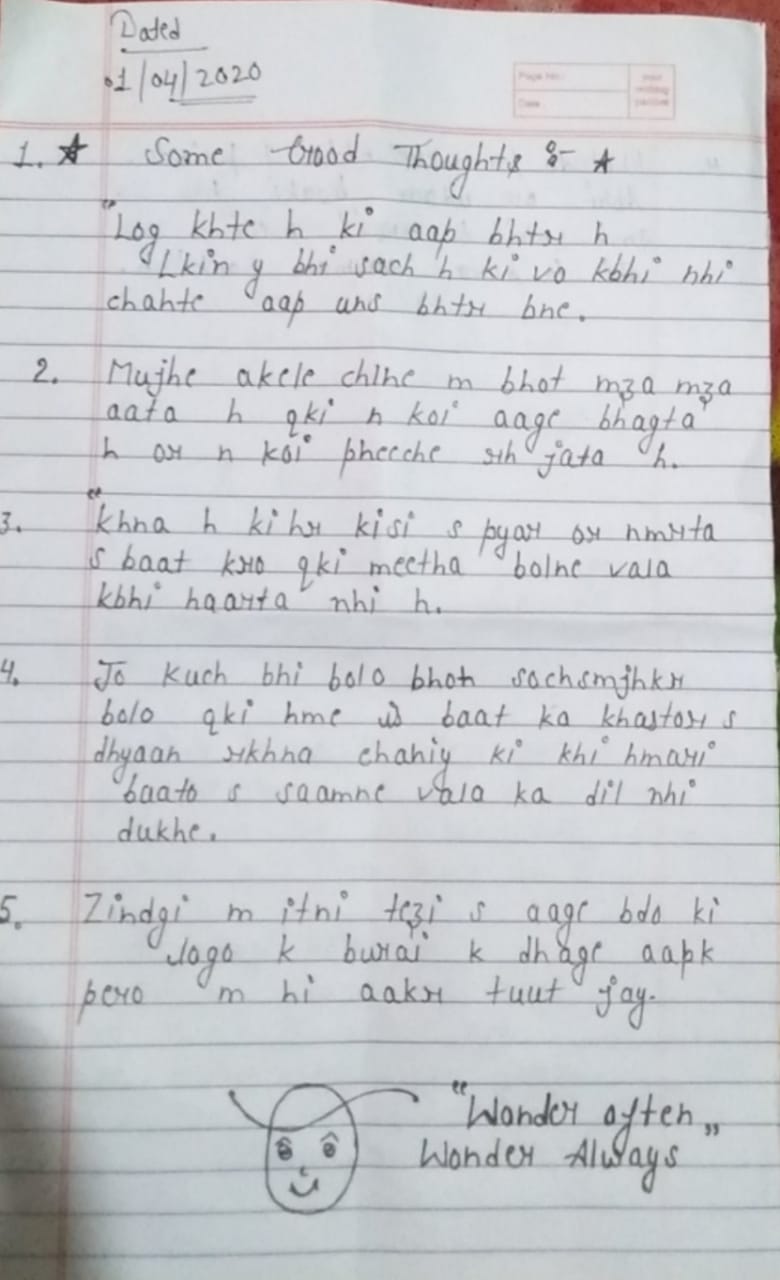 Dated
01/04/2020
Page No.:
Date
your
writing
partner
1. ★ Some Good Thoughts :- ★
"Log khte h ki aap bhtr h
Lkin y bhi sach h ki vo kbhi nhi
chahte aap uns bhtr bne.
2. Mujhe akele chlne m bhot mza mza
aata h qki n koi aage bhagta
h or n koi pheeche rh jata h.
3. "khna h ki hr kisi s pyar or nmrta
s baat kro qki meetha bolne vala
kbhi haarta nhi h.
4. Jo kuch bhi bolo bhoh sochsmjhkr
bolo qki hme is baat ka khastor s
dhyaan rkhna chahiy ki khi hmari
baato s saamne vala ka dil nhi
dukhe.
5. Zindgi m itni tezi s aage bdo ki
logo k burai k dhage aapk
pero m hi aakr tuut jay.
"Wonder often„
Wonder Always